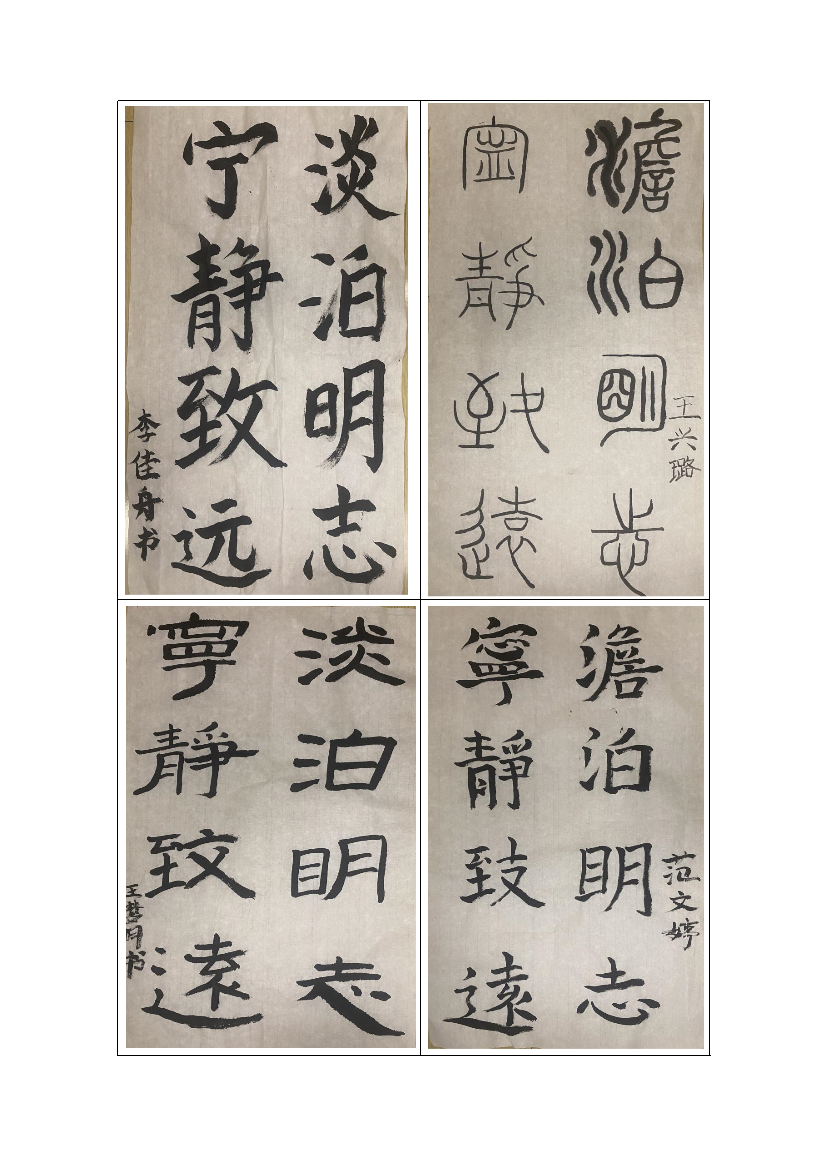 淡泊明志
宁静致远
李佳舟书
澹泊明志
寧靜致遠
王兴璐
淡泊明志
寧靜致遠
王慧月书
澹泊明志
寧靜致遠
范文婷